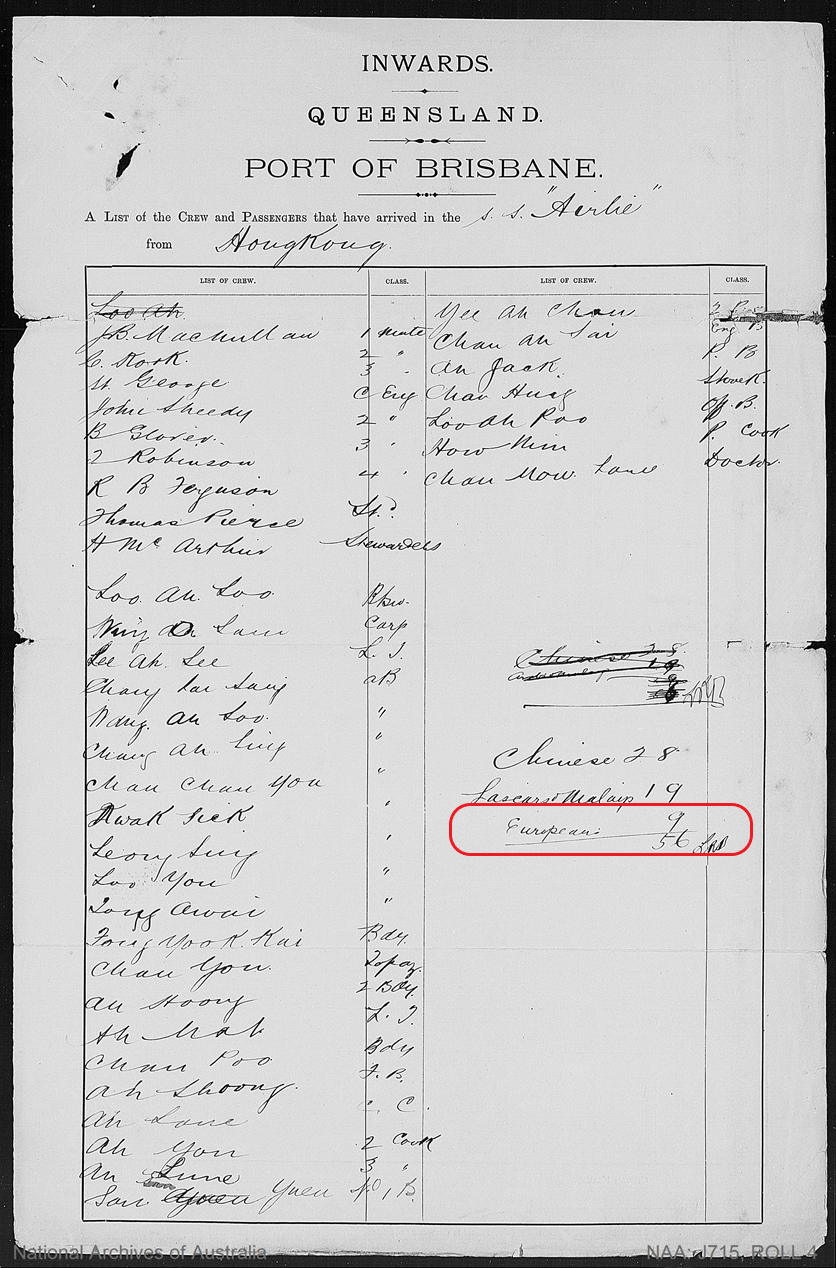 INWARDS.
QUEENSLAND.
PORT OF BRISBANE.
A LIST of the CREW and PASSENGERS that have arrived in the s. s. "Airlie"
from HongKong.
LIST OF CREW. CLASS. LIST OF CREW. CLASS.
Loo Ah
J.B. Macmillan 1 Mate
C. Kook. 2 "
W. George 3 "
John Sheedy C Eng
B Glover. 2 "
J Robinson 3 "
R B Ferguson 4 "
Thomas Pierce St.d
H Mc Arthur Stewardess
Loo. Ah. Loo
Ah Sam Carp
Lee Ah. See L. T.
Chong Lai Sang AB
Wang. Ah Loo. "
Chang Ah Sing "
Chan Chan You "
Kwak Sick "
Leong Sing "
Loo You "
Tong Awai "
Fong Yook. Kai Bdy.
Chan You. Topaz.
Ah Hoong 2 Bdy.
Ah Mak L. T.
Chan Poo Bdy
Ah Shoong. F. B.
Ah Lane C. C.
Ah You 2 Cook
Ah Lune 3 "
San Yuen No 1, B.
Yee Ah Chan
Chan Ah Sai
Ah Jack. P. B
Chan Hung Storek.
Loo Ah Poo Off. B.
How Nim P. Cook
Chan Mow. Lane Doctor.
Chinese 28
19
Chinese 28
Lascars & Malays 19
European: 9
56
National Archives of Australia
NAA: J715, ROLL 4